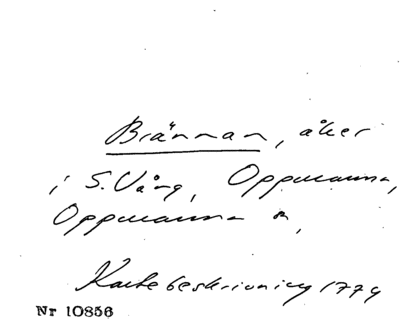 Brännan, åker
i S. Vång, Oppmanna,
Oppmanna sn,
Kartebeskrivning 1774
Nr 10856